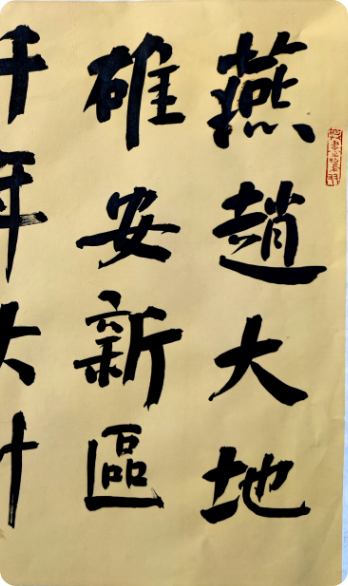 燕趙大地
雄安新區
千年大